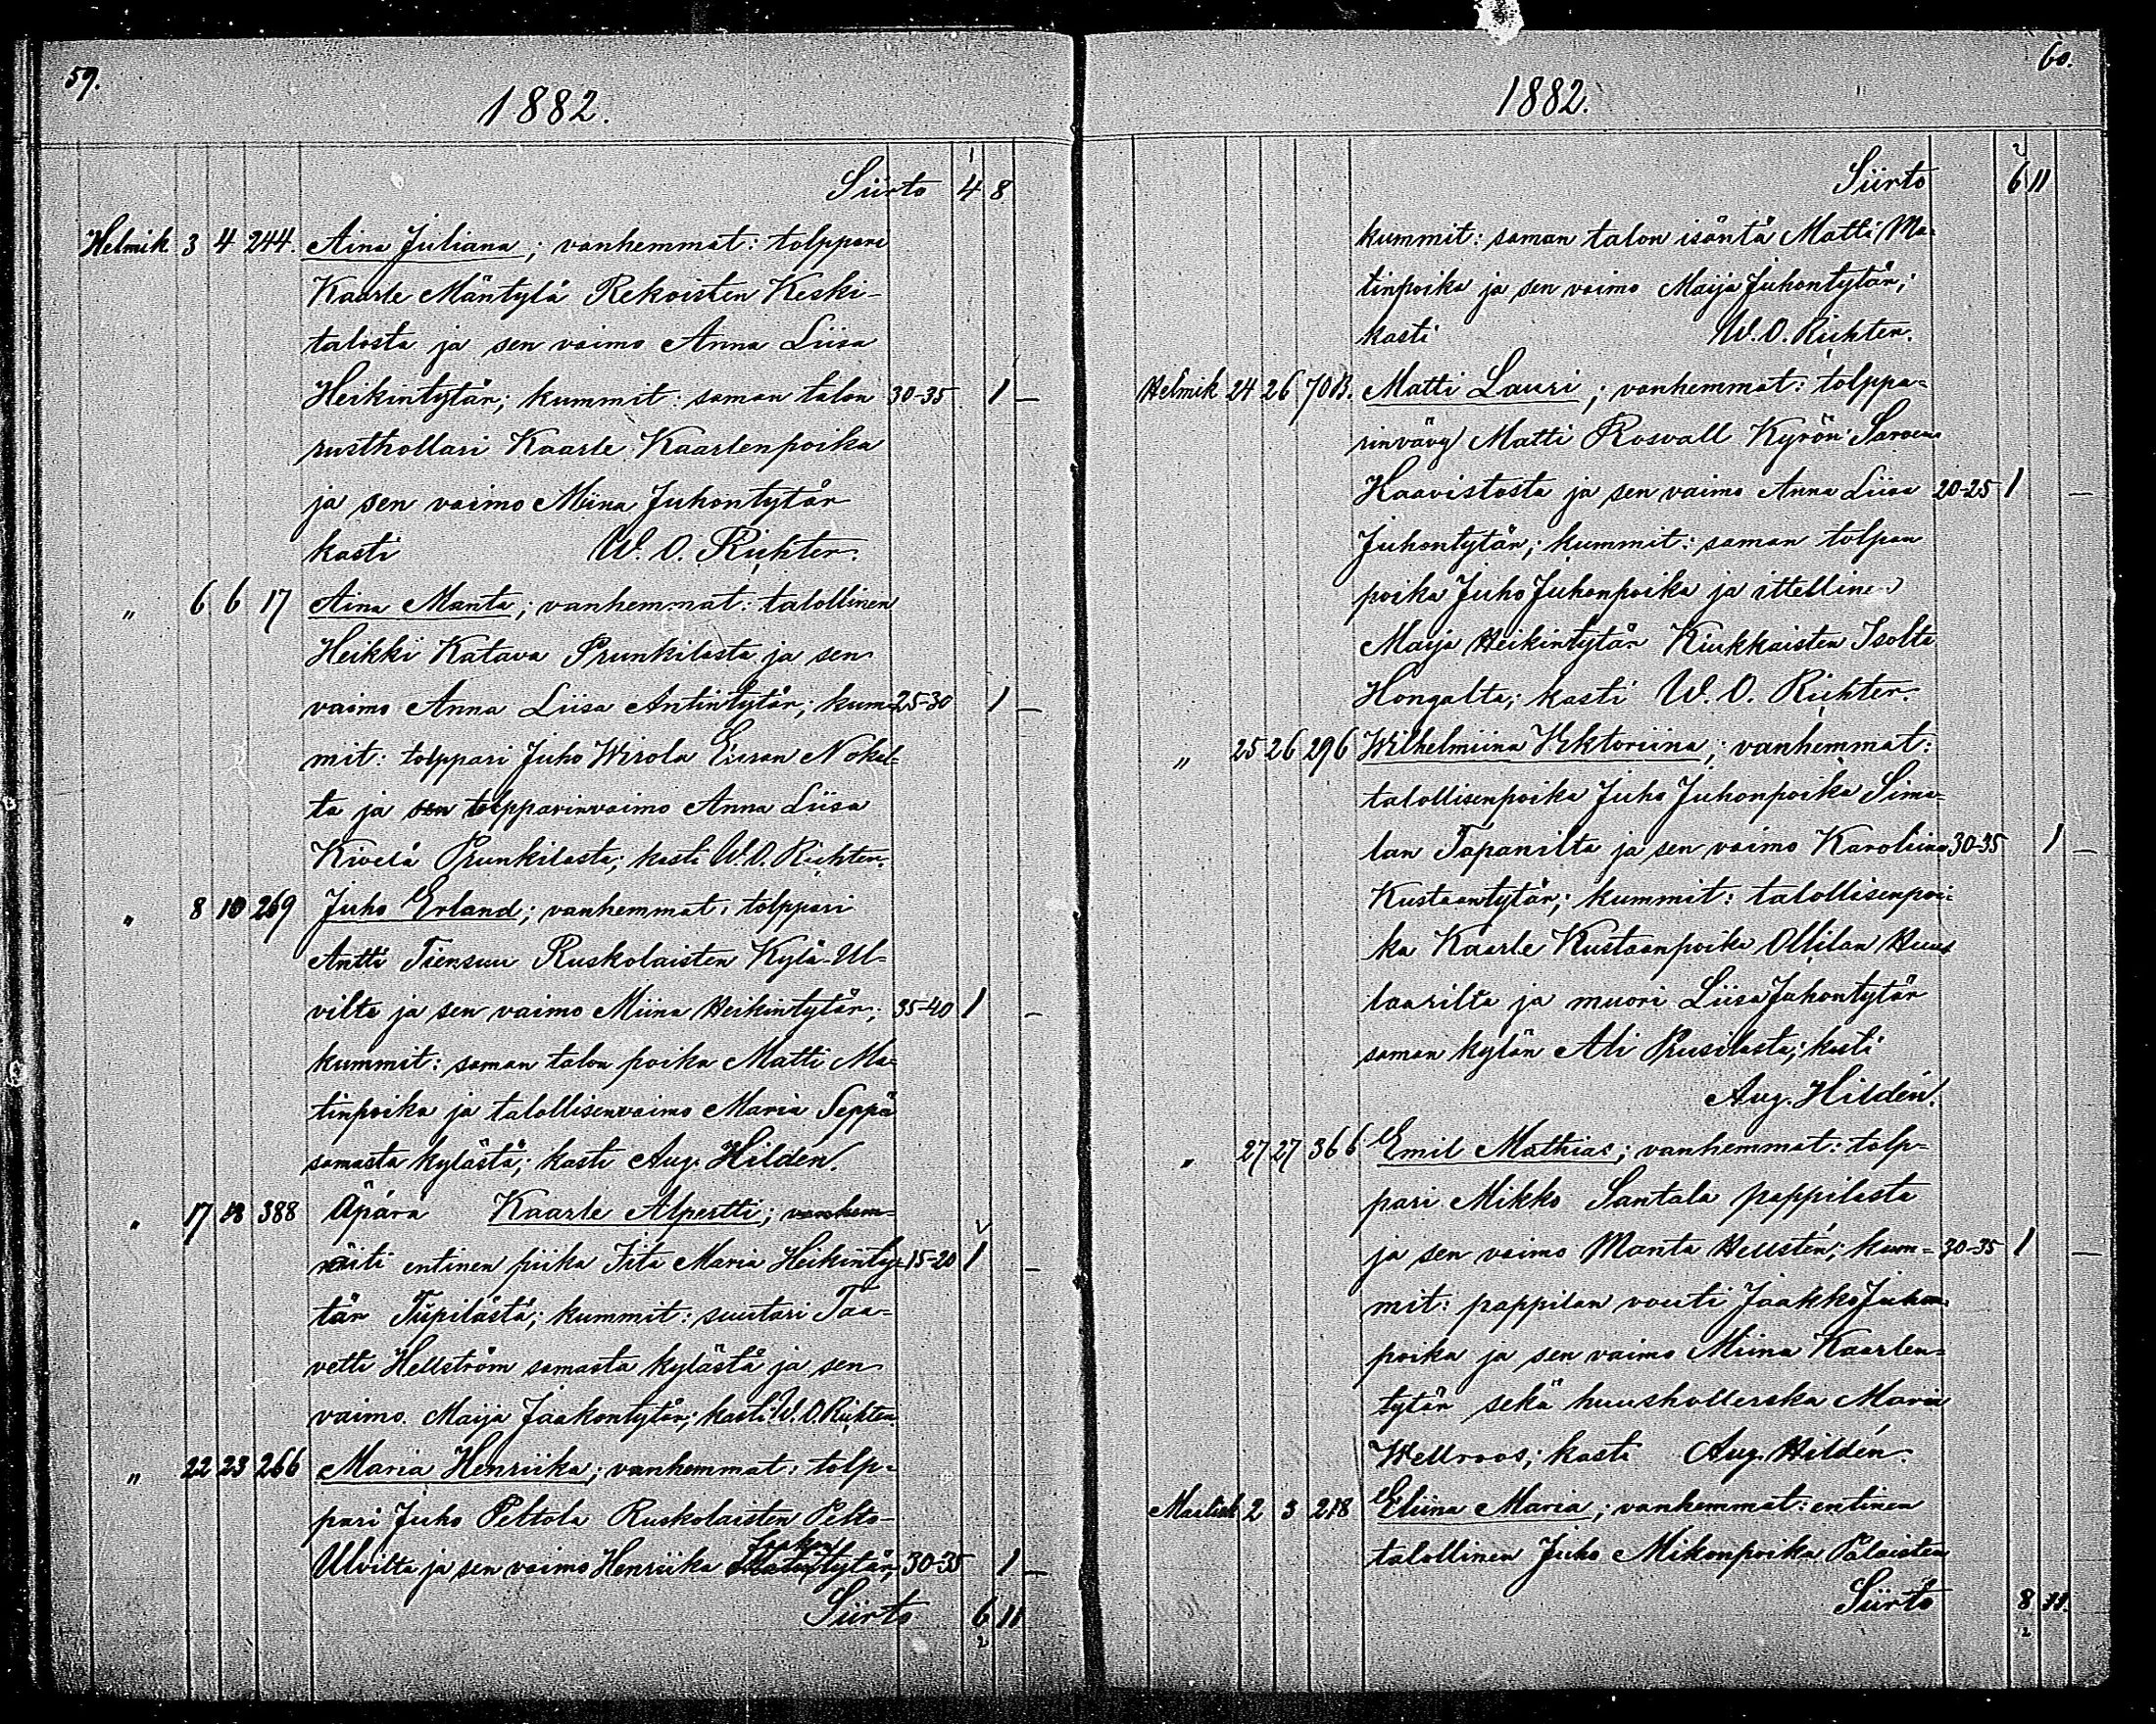 59.
1882.
Siirto 4 1 8
Helmik. 3 4 244. Aina Juliana; vanhemmat: tolppari
Kaarle Mäntylä Rekoisten Keski-
talosta ja sen vaimo Anna Liisa
Heikintytär; kummit: saman talon 30-35 1 –
rusthollari Kaarle Kaarlenpoika
ja sen vaimo Miina Juhontytär
kasti W. O. Richter.
„ 6 6 17 Aina Manta; vanhemmat: talollinen
Heikki Katava Prunkilasta ja sen
vaimo Anna Liisa Antintytär; kum= 25-30 1 –
mit: tolppari Juho Wirola Euran Nokal=
ta ja sen tolpparinvaimo Anna Liisa
Kivelä Prunkilasta; kasti W. O. Richter.
„ 8 10 269 Juho Erland; vanhemmat: tolppari
Antti Tiensuu Ruskolaisten Kylä-Ul=
vilta ja sen vaimo Miina Heikintytär; 35-40 1 –
kummit: saman talon poika Matti Ma=
tinpoika ja talollisenvaimo Maria Seppä
samasta kylästä; kasti Aug. Hildén.
„ 17 18 388 Äpärä Kaarle Alpertti; vanhem=
äiti entinen piika Iita Maria Heikinty= 15-20 1 –
tär Tiipilästä; kummit: suutari Taa=
vetti Hellström samasta kylästä ja sen
vaimo Maija Jaakontytär; kasti W. O. Richter.
„ 22 23 266 Maria Henriika; vanhemmat: tolp=
pari Juho Peltola Ruskolaisten Pelto-
Jaakon
Ulvilta ja sen vaimo Henriika tytär; 30-35 1 –
Siirto 6 11
2
60.
1882.
2
Siirto 6 11
kummit: saman talon isäntä Matti Ma=
tinpoika ja sen vaimo Maija Juhontytär;
kasti W. O. Richter.
Helmik 24 26 70B. Matti Lauri; vanhemmat: tolppa=
rinvävy Matti Rosvall Kyrön
Haavistosta ja sen vaimo Anna Liisa 20-25 1 –
Juhontytär; kummit: saman tolpan
poika Juho Juhonpoika ja ittellinen
Maija Heikintytär Kiukkaisten Isolta
Hongalta; kasti W. O. Richter.
„ 25 26 296 Wilhelmiina Wiktoriina; vanhemmat:
talollisenpoika Juho Juhonpoika Sima=
lan Tapanilta ja sen vaimo Karoliina 30-35 1 –
Kustaantytär; kummit: talollisenpoi=
ka Kaarle Kustaanpoika Ollilan Huus
laarilta ja muori Liisa Juhontytär
saman kylän Ali Prusilasta; kasti
Aug. Hildén.
„ 27 27 366 Emil Mathias; vanhemmat: tolp=
pari Mikko Santala pappilasta
ja sen vaimo Manta Hellstén; kum= 30-35 1 –
mit: pappilan vouti Jaakko Juhon
poika ja sen vaimo Miina Kaarlen=
tytär sekä huushollerska Maria
Wellroos; kasti Aug. Hildén.
Maalisk 2 3 278 Eliina Maria; vanhemmat: entinen
talollinen Juho Mikonpoika Pälaisten
Siirto 8 11.
2